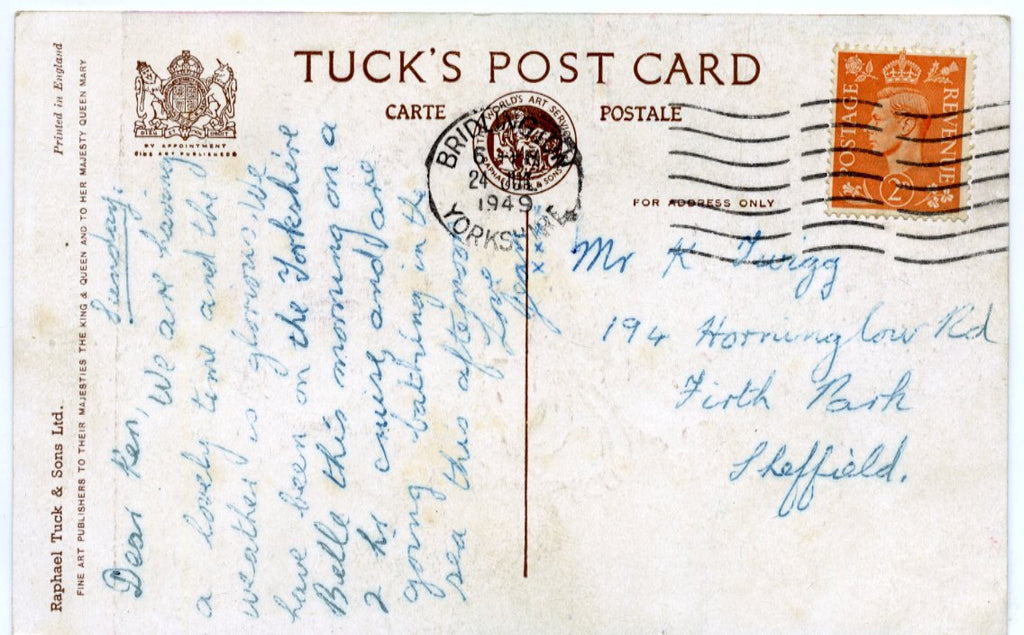 TUCK'S POST CARD
CARTE POSTALE
BY APPOINTMENT
FINE ART PUBLISHERS
WORLD'S ART SERVICE
RAPHAEL TUCK & SONS
BRIDLINGTON
24
1949
YORKSHIRE
POSTAGE REVENUE
2D
FOR ADDRESS ONLY
Printed in England
Raphael Tuck & Sons Ltd.
FINE ART PUBLISHERS TO THEIR MAJESTIES THE KING & QUEEN AND TO HER MAJESTY QUEEN MARY
Sunday.
Dear Ken, We are having
a lovely time and the
weather is glorious. We
have been on the Yorkshire
Belle this morning on a
2 hr cruise and are
going bathing in the
sea this afternoon
Love
Jean
xxxx
Mr K Twigg
194 Horninglow Rd
Firth Park
Sheffield.